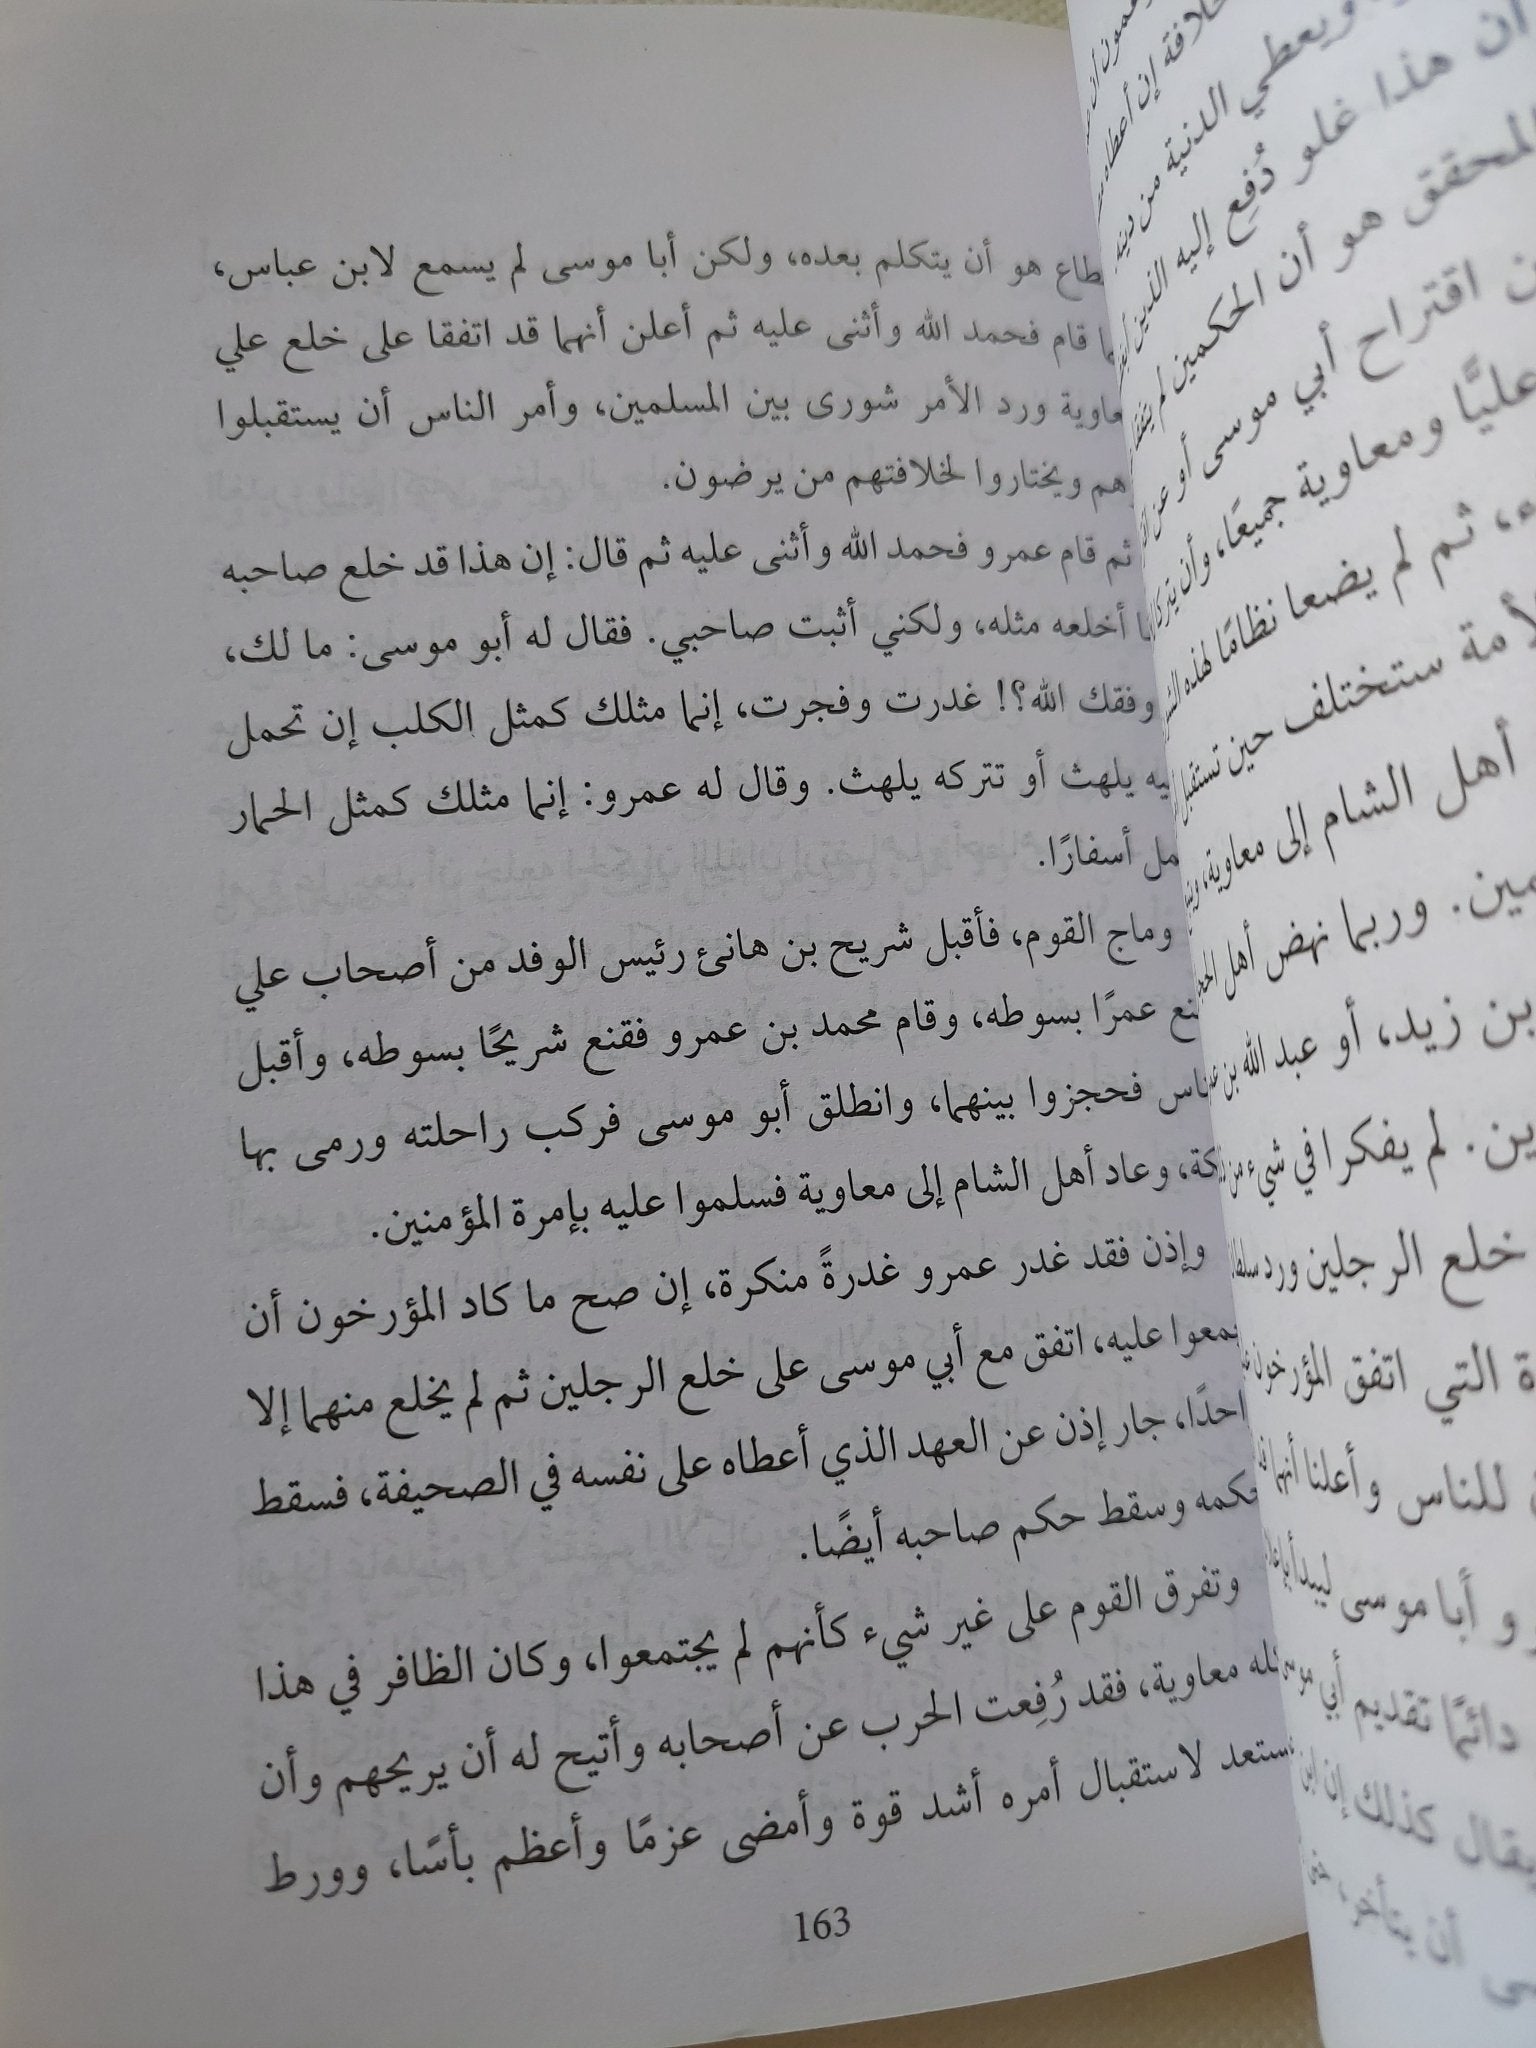 هو أن يتكلم بعده، ولكن أبا موسى لم يسمع لابن عباس،
قام فحمد الله وأثنى عليه ثم أعلن أنهما قد اتفقا على خلع علي
ورد الأمر شورى بين المسلمين، وأمر الناس أن يستقبلوا
ويختاروا لخلافتهم من يرضون.
ثم قام عمرو فحمد الله وأثنى عليه ثم قال: إن هذا قد خلع صاحبه
أخلعه مثله، ولكني أثبت صاحبي. فقال له أبو موسى: ما لك،
وفقك الله؟! غدرت وفجرت، إنما مثلك كمثل الكلب إن تحمل
يلهث أو تتركه يلهث. وقال له عمرو: إنما مثلك كمثل الحمار
أسفارًا.
وماج القوم، فأقبل شريح بن هانئ رئيس الوفد من أصحاب علي
عمرًا بسوطه، وقام محمد بن عمرو فقنع شريحًا بسوطه، وأقبل
فحجزوا بينهما، وانطلق أبو موسى فركب راحلته ورمى بها
وعاد أهل الشام إلى معاوية فسلموا عليه بإمرة المؤمنين.
وإذن فقد غدر عمرو غدرةً منكرة، إن صح ما كاد المؤرخون أن
عليه، اتفق مع أبي موسى على خلع الرجلين ثم لم يخلع منهما إلا
جار إذن عن العهد الذي أعطاه على نفسه في الصحيفة، فسقط
حكمه وسقط حكم صاحبه أيضًا.
وتفرق القوم على غير شيء كأنهم لم يجتمعوا، وكان الظافر في هذا
معاوية، فقد رُفِعت الحرب عن أصحابه وأتيح له أن يريحهم وأن
يستعد لاستقبال أمره أشد قوة وأمضى عزمًا وأعظم بأسًا، وورط
163
ويعطي الدنية من دينه
أن هذا غلو دُفِع إليه الذين
المحقق هو أن الحكمين لم يتفقا
اقتراح أبي موسى أو عن
عليًّا ومعاوية جميعًا، وأن يتركا
ثم لم يضعا نظامًا لهذه
ستختلف حين تستقبل
أهل الشام إلى معاوية،
وربما نهض أهل
بن زيد، أو عبد الله بن
لم يفكرا في شيء من
خلع الرجلين ورد
التي اتفق المؤرخون
للناس وأعلنا أنهما قد
أبا موسى ليبدأ
دائمًا تقديم أبي موسى
يقال كذلك إن ابن
أن يتأخر